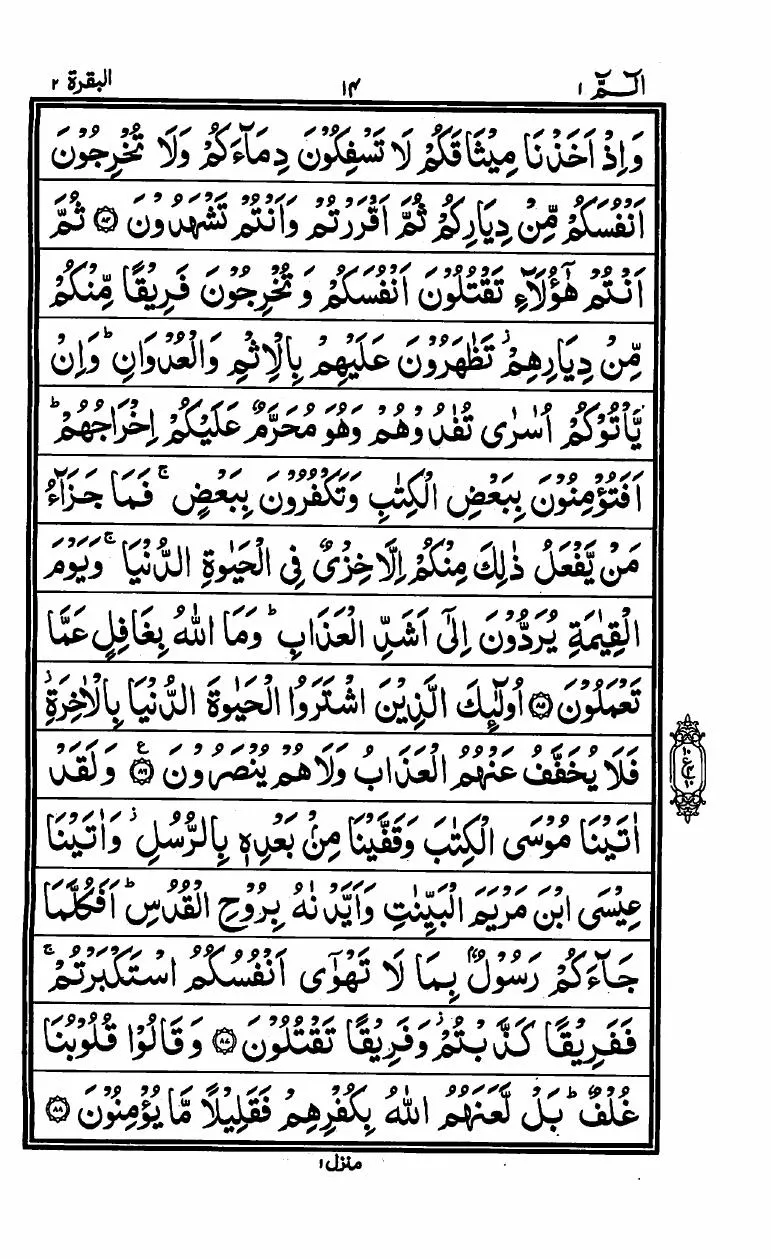 الٓـمّٓ ۱
۱۴
البقرة ۲
وَاِذْ اَخَذْنَا مِيْثَاقَكُمْ لَا تَسْفِكُوْنَ دِمَآءَكُمْ وَلَا تُخْرِجُوْنَ
اَنْفُسَكُمْ مِّنْ دِيَارِكُمْ ثُمَّ اَقْرَرْتُمْ وَاَنْتُمْ تَشْهَدُوْنَ ۝۸۴ ثُمَّ
اَنْتُمْ هٰٓؤُلَآءِ تَقْتُلُوْنَ اَنْفُسَكُمْ وَ تُخْرِجُوْنَ فَرِيْقًا مِّنْكُمْ
مِّنْ دِيَارِهِمْ ؗ تَظٰهَرُوْنَ عَلَيْهِمْ بِالْاِثْمِ وَالْعُدْوَانِ ؕ وَاِنْ
يَّاْتُوْكُمْ اُسٰرٰى تُفٰدُوْهُمْ وَهُوَ مُحَرَّمٌ عَلَيْكُمْ اِخْرَاجُهُمْ ؕ
اَفَتُؤْمِنُوْنَ بِبَعْضِ الْكِتٰبِ وَتَكْفُرُوْنَ بِبَعْضٍ ۚ فَمَا جَزَآءُ
مَنْ يَّفْعَلُ ذٰلِكَ مِنْكُمْ اِلَّا خِزْىٌ فِى الْحَيٰوةِ الدُّنْيَا ۚ وَيَوْمَ
الْقِيٰمَةِ يُرَدُّوْنَ اِلٰٓى اَشَدِّ الْعَذَابِ ؕ وَمَا اللّٰهُ بِغَافِلٍ عَمَّا
تَعْمَلُوْنَ ۝۸۵ اُولٰٓئِكَ الَّذِيْنَ اشْتَرَوُا الْحَيٰوةَ الدُّنْيَا بِالْاٰخِرَةِ ؗ
فَلَا يُخَفَّفُ عَنْهُمُ الْعَذَابُ وَلَا هُمْ يُنْصَرُوْنَ ۝۸۶ ع وَلَقَدْ
اٰتَيْنَا مُوْسَى الْكِتٰبَ وَقَفَّيْنَا مِنْۢ بَعْدِهٖ بِالرُّسُلِ ؗ وَاٰتَيْنَا
عِيْسَى ابْنَ مَرْيَمَ الْبَيِّنٰتِ وَاَيَّدْنٰهُ بِرُوْحِ الْقُدُسِ ؕ اَفَكُلَّمَا
جَآءَكُمْ رَسُوْلٌۢ بِمَا لَا تَهْوٰٓى اَنْفُسُكُمُ اسْتَكْبَرْتُمْ ۚ
فَفَرِيْقًا كَذَّبْتُمْ ؗ وَفَرِيْقًا تَقْتُلُوْنَ ۝۸۷ وَقَالُوْا قُلُوْبُنَا
غُلْفٌ ؕ بَلْ لَّعَنَهُمُ اللّٰهُ بِكُفْرِهِمْ فَقَلِيْلًا مَّا يُؤْمِنُوْنَ ۝۸۸
منزل ۱